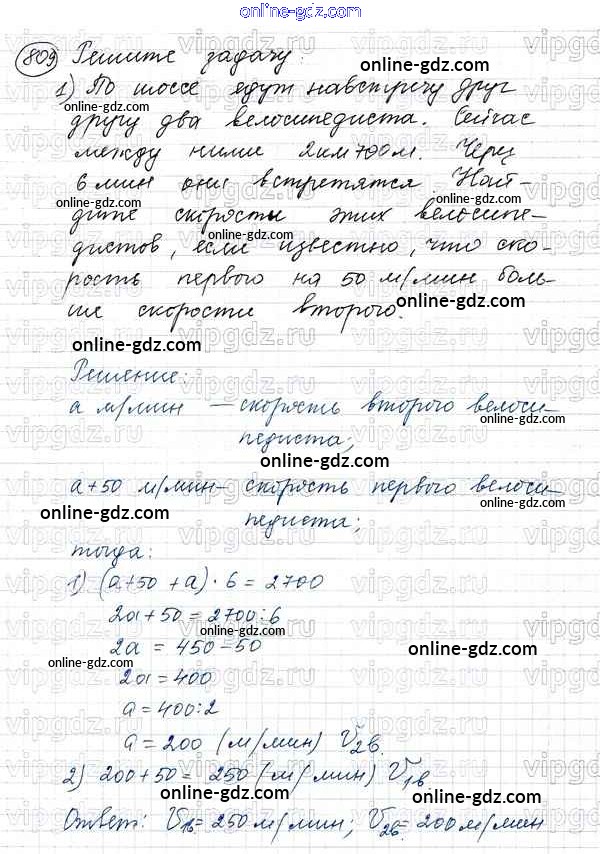 online-gdz.com
809 Решите задачу:
online-gdz.com
1) По шоссе едут навстречу друг
другу два велосипедиста. Сейчас
online-gdz.com
между ними 2км 700м. Через
6 мин они встретятся. Най-
online-gdz.com
дите скорости этих велосипе-
online-gdz.com
дистов, если известно, что ско-
рость первого на 50 м/мин боль-
online-gdz.com
ше скорости второго.
online-gdz.com
Решение:
а м/мин — скорость второго велоси-
педиста;
online-gdz.com
а+50 м/мин — скорость первого велоси-
online-gdz.com
педиста;
тогда:
1) (а+50 +а)·6 = 2700
2а+50 = 2700:6
online-gdz.com
2а = 450-50
online-gdz.com
online-gdz.com
2а=400
а=400:2
online-gdz.com
а=200 (м/мин) V2в.
2) 200+50= 250 (м/мин) V1в
online-gdz.com
Ответ: V1в=250м/мин; V2в=200м/мин
online-gdz.com